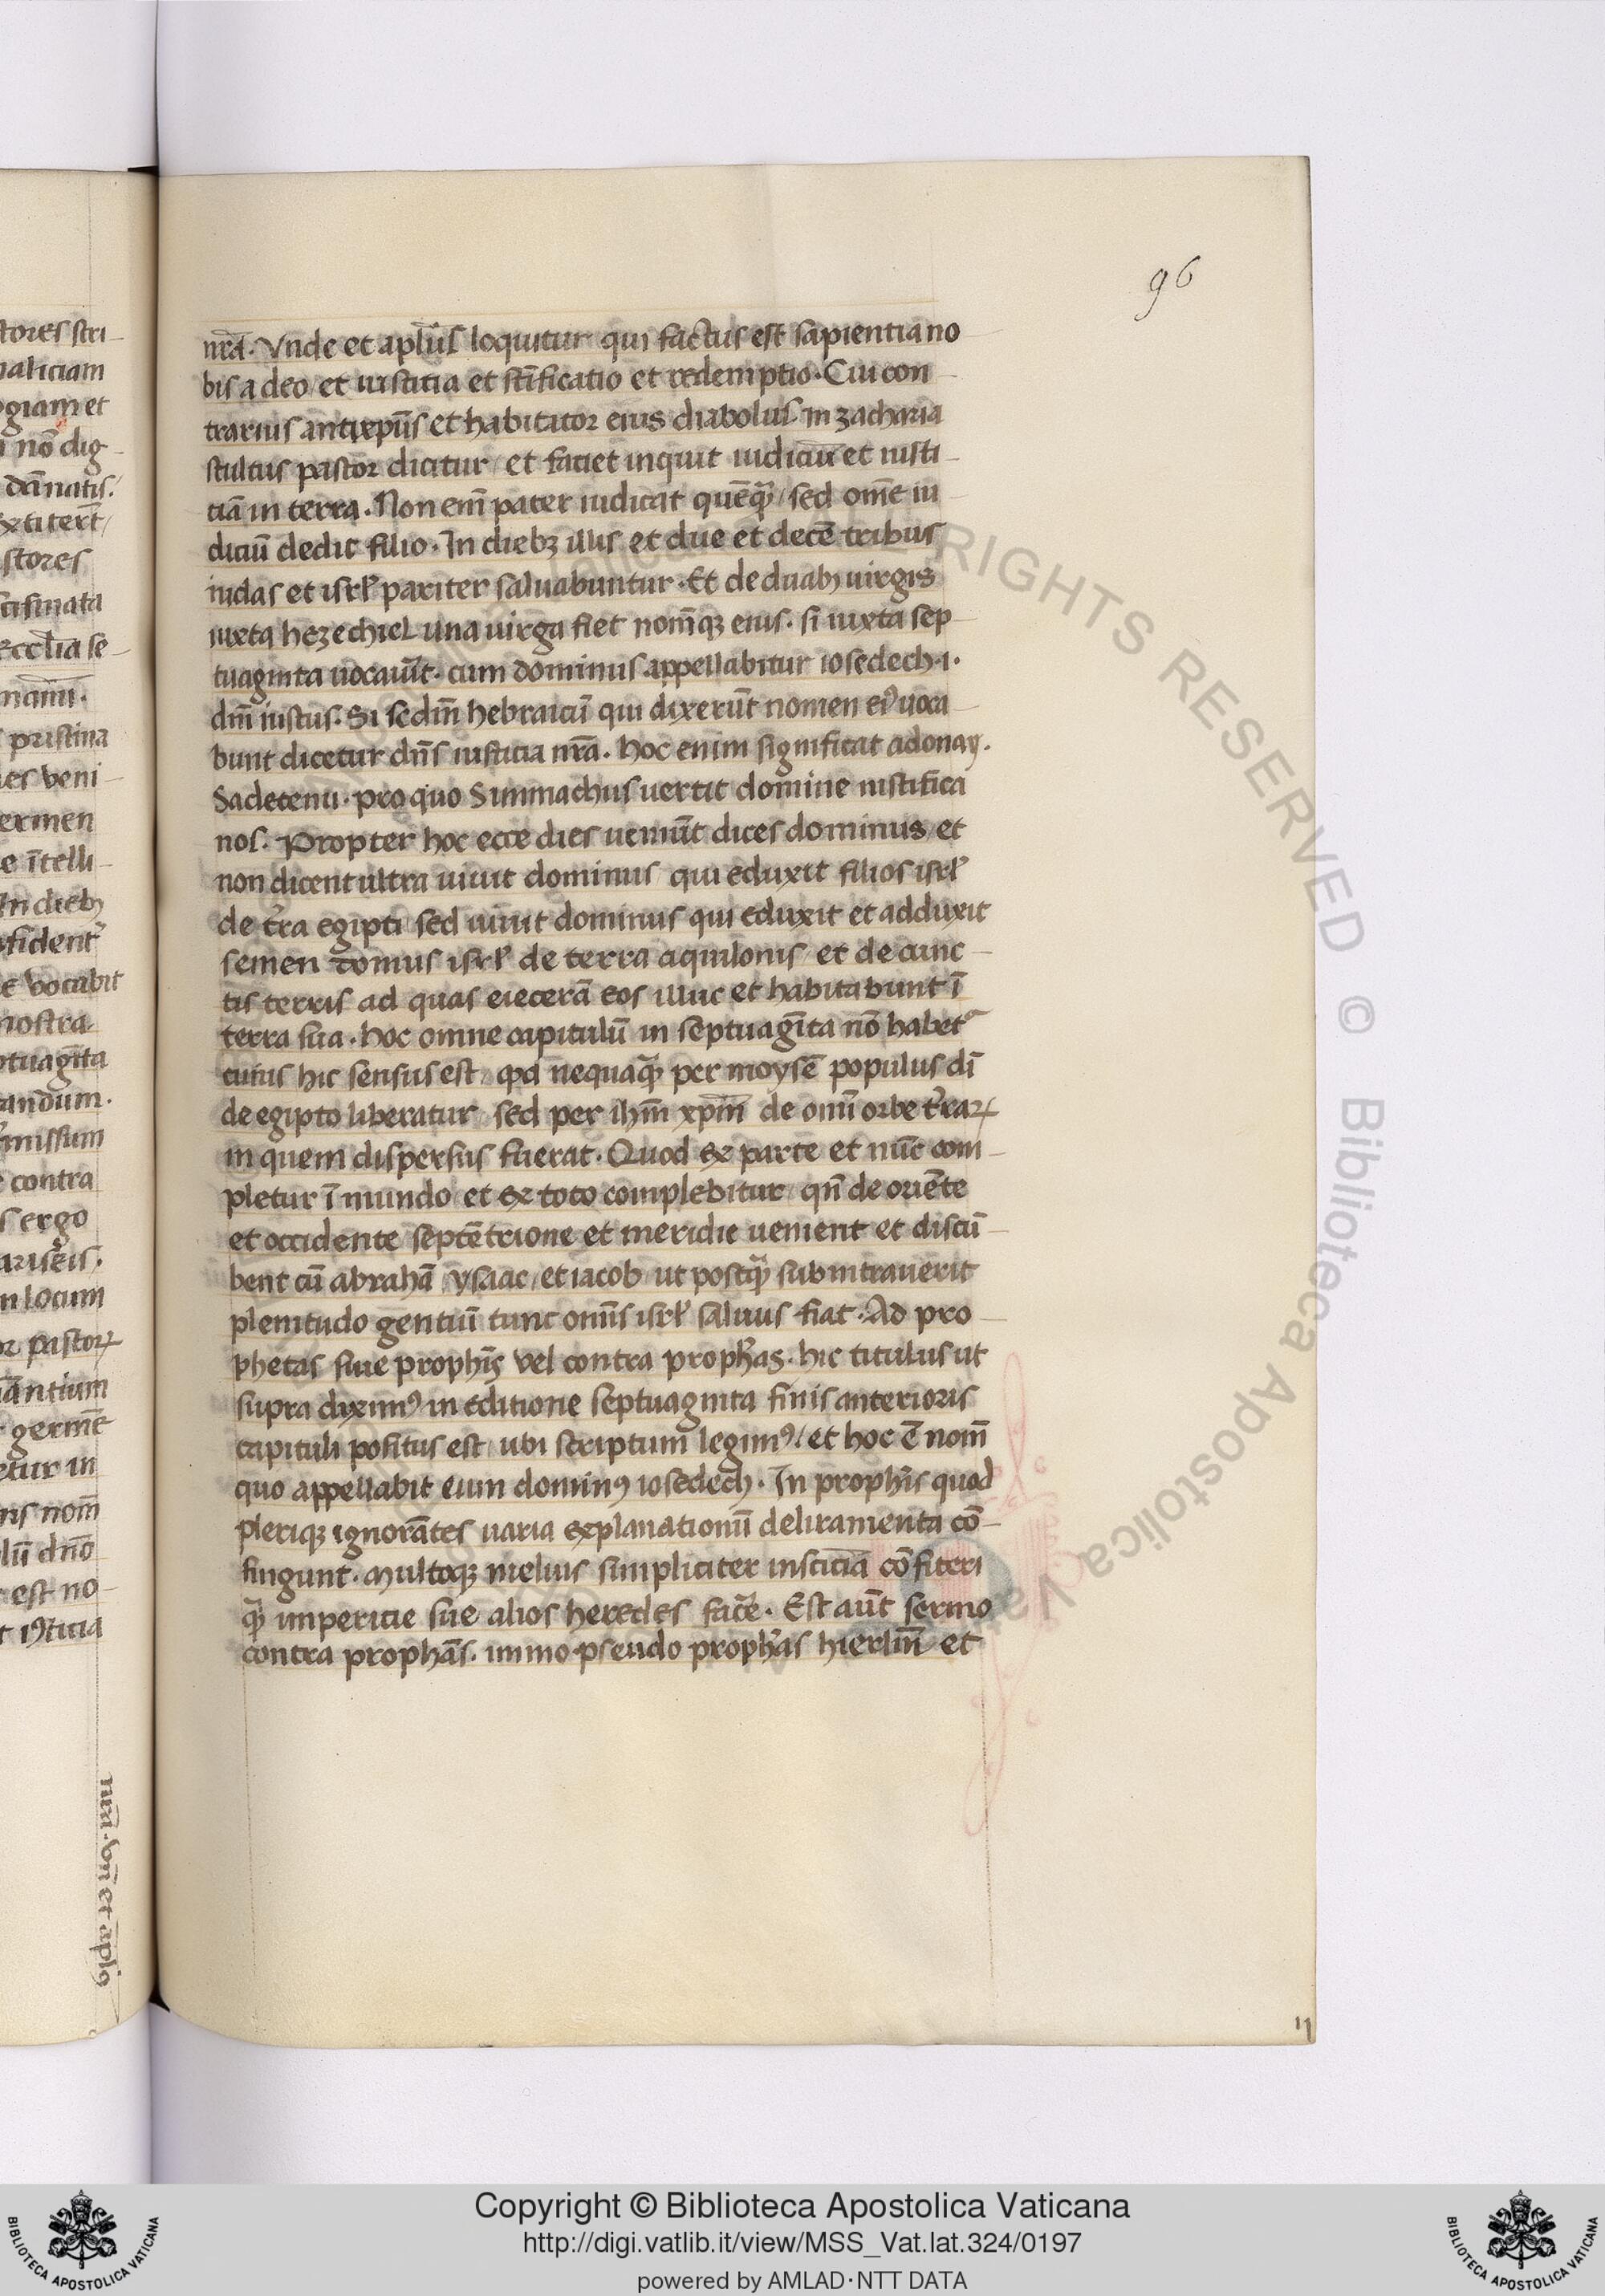 96
nrā. Vnde et aplūs loquitur qui factus est sapientia no
bis a deo et iusticia et sc̄ificatio et redemptio. Cui con
trarius antixp̄us et habitator eius diabolus. in zacharia
stultus pastor dicitur / et faciet inquit iudiciū et iusti
tiā in terra. Non em̄ pater iudicat quēqͣ / sed om̄e iu
diciū dedit filio. In diebꝫ illis et due et decē tribus
iudas et isrl̓ pariter saluabuntur. Et de duabꝫ uirgis
iuxta hezechiel una uirga fiet nom̄qꝫ eius. si iuxta sep
tuaginta uocauūt. cum dominus appellabitur iosedech .i.
dm̄ iustus. Si sedm̄ hebraicū qui dixerūt nomen ei᾿ uoca
bunt dicetur dn̄s iusticia nrā. hoc enim significat adonay.
Sadecenu. pro quo Simmachus uertit domine iustifica
nos. Propter hoc ecce dies ueniūt dices dominus / et
non dicent ultra uiuit dominus qui eduxit filios isrl̓
de t̓ra egipti sed uiuit dominus qui eduxit et adduxit
semen domus isrl̓ de terra aquilonis / et de cunc
tis terris ad quas eiecerā eos illuc et habitabunt ī
terra sua. hoc omne capitulū in septuagīta nō habet᷑
cuius hic sensus est / qd nequaqͣ per moysē populus dī
de egipto liberatur / sed per ihm̄ xpm̄ de om̄i orbe t̓raꝝ
in quem dispersus fuerat. Quod ex parte et nūc com
pletur ī mundo et ex toto complebitur / qn̄ de oriēte
et occidente septētrione et meridie uenient et discū
bent cū abrahā / ysaac / et iacob / ut postqͣ subintrauerit
plenitudo gentiū tunc om̄is isrl̓ saluus fiat. Ad pro
phetas siue proph̓is vel contra proph̓as. hic titulus ut
supra diximꝰ in editione septuaginta finis anterioris
capituli positus est / ubi scriptum legimꝰ / et hoc ē nom̄
quo appellabit eum dominꝰ iosedech. In proph̓is quod
pleriqꝫ ignorātes uaria explanationū deliramenta cō
fingunt. multoqꝫ melius simpliciter insciciā cōfiteri
qͣ imperitie sue alios heredes fac̓e. Est aūt sermo
contra prophās. immo pseudo proph̓as hierlm̄ et
Copyright © Biblioteca Apostolica Vaticana
http://digi.vatlib.it/view/MSS_Vat.lat.324/0197
powered by AMLAD·NTT DATA